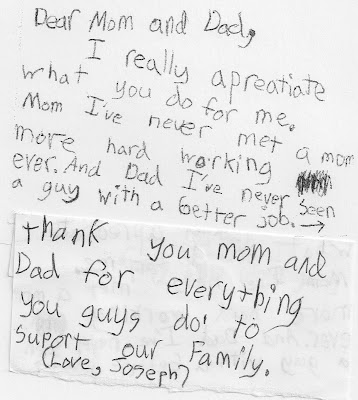 Dear Mom and Dad,
I really apreatiate
what you do for me.
Mom I've never met a mom
more hard working
ever. And Dad I've never seen
a guy with a better job. →
thank you mom and
Dad for everything
you guys do to
suport our Family.
(Love, Joseph)